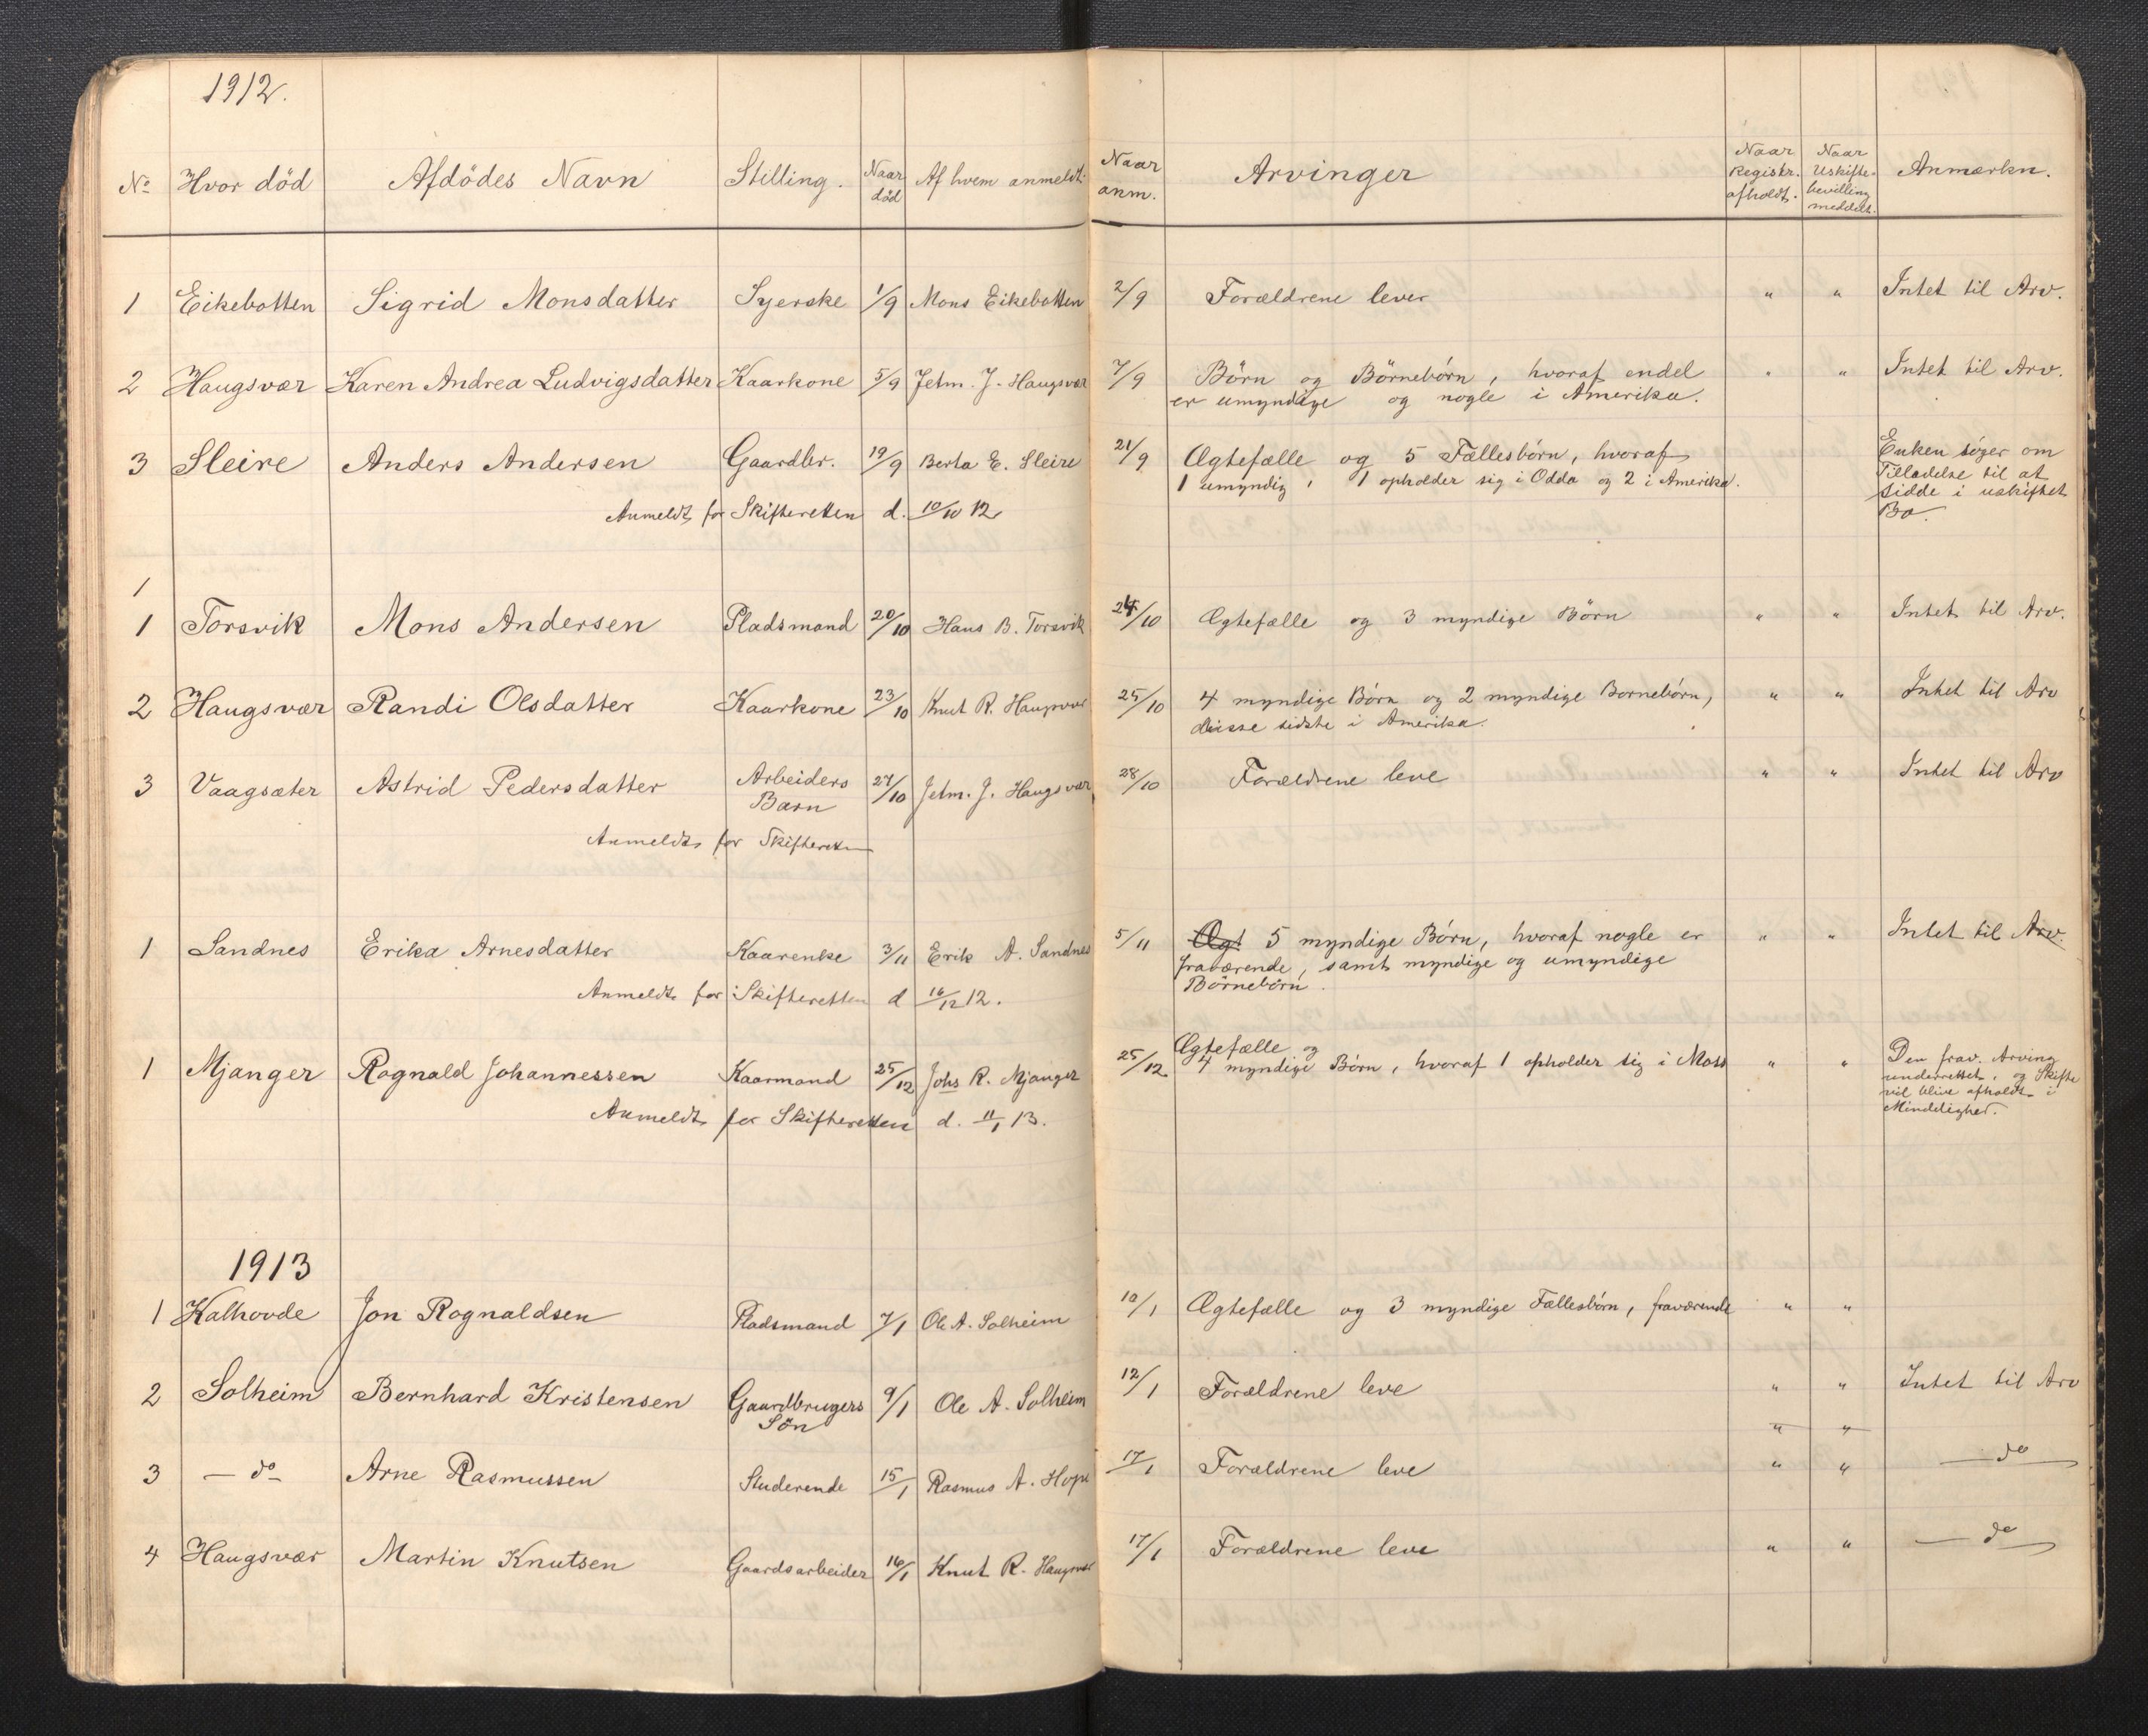 1912.
No Hvor död Afdödes Navn Stilling. Naar död Af hvem anmeldt. Naar anm. Arvinger Naar Registr. afholdt. Naar Uskifte-bevilling meddelt. Anmærkn.
1 Eikebotten Sigrid Monsdatter Syerske 1/9 Mons Eikebotten 2/9 Forældrene lever " " Intet til Arv.
2 Haugsvær Karen Andrea Ludvigsdatter Kaarkone 5/9 Jetm. J. Haugsvær 7/9 Börn og Börnebörn, hvoraf endel " " Intet til Arv.
er umyndige og nogle i Amerika.
3 Sleire Anders Andersen Gaardbr. 19/9 Berta E. Sleire 21/9 Ægtefælle og 5 Fællesbörn, hvoraf Enken söger om
1 umyndig, 1 opholder sig i Odda og 2 i Amerika. Tilladelse til at
sidde i uskiftet
Bo.
Anmeldt for Skifteretten d. 10/10 12
1
1 Torsvik Mons Andersen Pladsmand 20/10 Hans B. Torsvik 24/10 Ægtefælle og 3 myndige Börn " " Intet til Arv.
2 Haugsvær Randi Olsdatter Kaarkone 23/10 Knut R. Haugsvær 25/10 4 myndige Börn og 2 myndige Bornebörn, " " Intet til Arv
disse sidste i Amerika.
3 Vaagsæter Astrid Pedersdatter Arbeiders 27/10 Jetm. J. Haugsvær 28/10 Forældrene leve " " Intet til Arv
Barn
Anmeldt for Skifteretten
1 Sandnes Erika Arnesdatter Kaarenke 3/11 Erik A. Sandnes 5/11 Ægt 5 myndige Börn, hvoraf nogle er " " Intet til Arv.
fraværende, samt myndige og umyndige
Börnebörn.
Anmeldt for Skifteretten d 16/12 12.
1 Mjanger Rognald Johannessen Kaarmand 25/12 Johs R. Mjanger 25/12 Ægtefælle og " " Den frav. Arving
4 myndige Börn, hvoraf 1 opholder sig i Moss underrettet, og Skifte
vil blive afholdt i
Mindelighed.
Anmeldt for Skifteretten d. 11/1 13.
1913
1 Kalhovde Jon Rognaldsen Pladsmand 7/1 Ole A. Solheim 10/1 Ægtefælle og 3 myndige Fællesbörn, fraværende " "
2 Solheim Bernhard Kristensen Gaardbrugers 9/1 Ole A. Solheim 12/1 Forældrene leve " " Intet til Arv
Sön " "
3 — do — Arne Rasmussen Studerende 15/1 Rasmus A. Hope 17/1 Forældrene leve " " — do —
4 Haugsvær Martin Knutsen Gaardsarbeider 16/1 Knut R. Haugsvær 17/1 Forældrene leve " " — do —